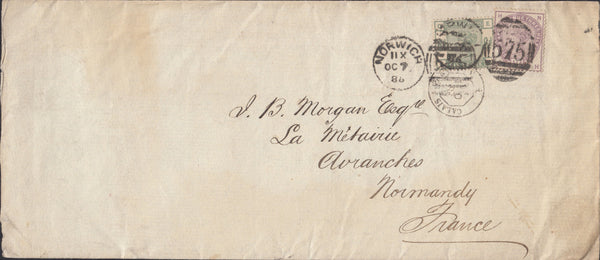 NORWICH
11 X
OC 7
86
575
CALAIS
J. B. Morgan Esqre
La Métairie
Avranches
Normandy
France